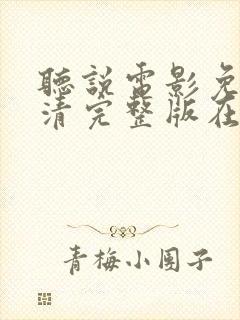 聽說電影免
清完整版在
青梅小團子